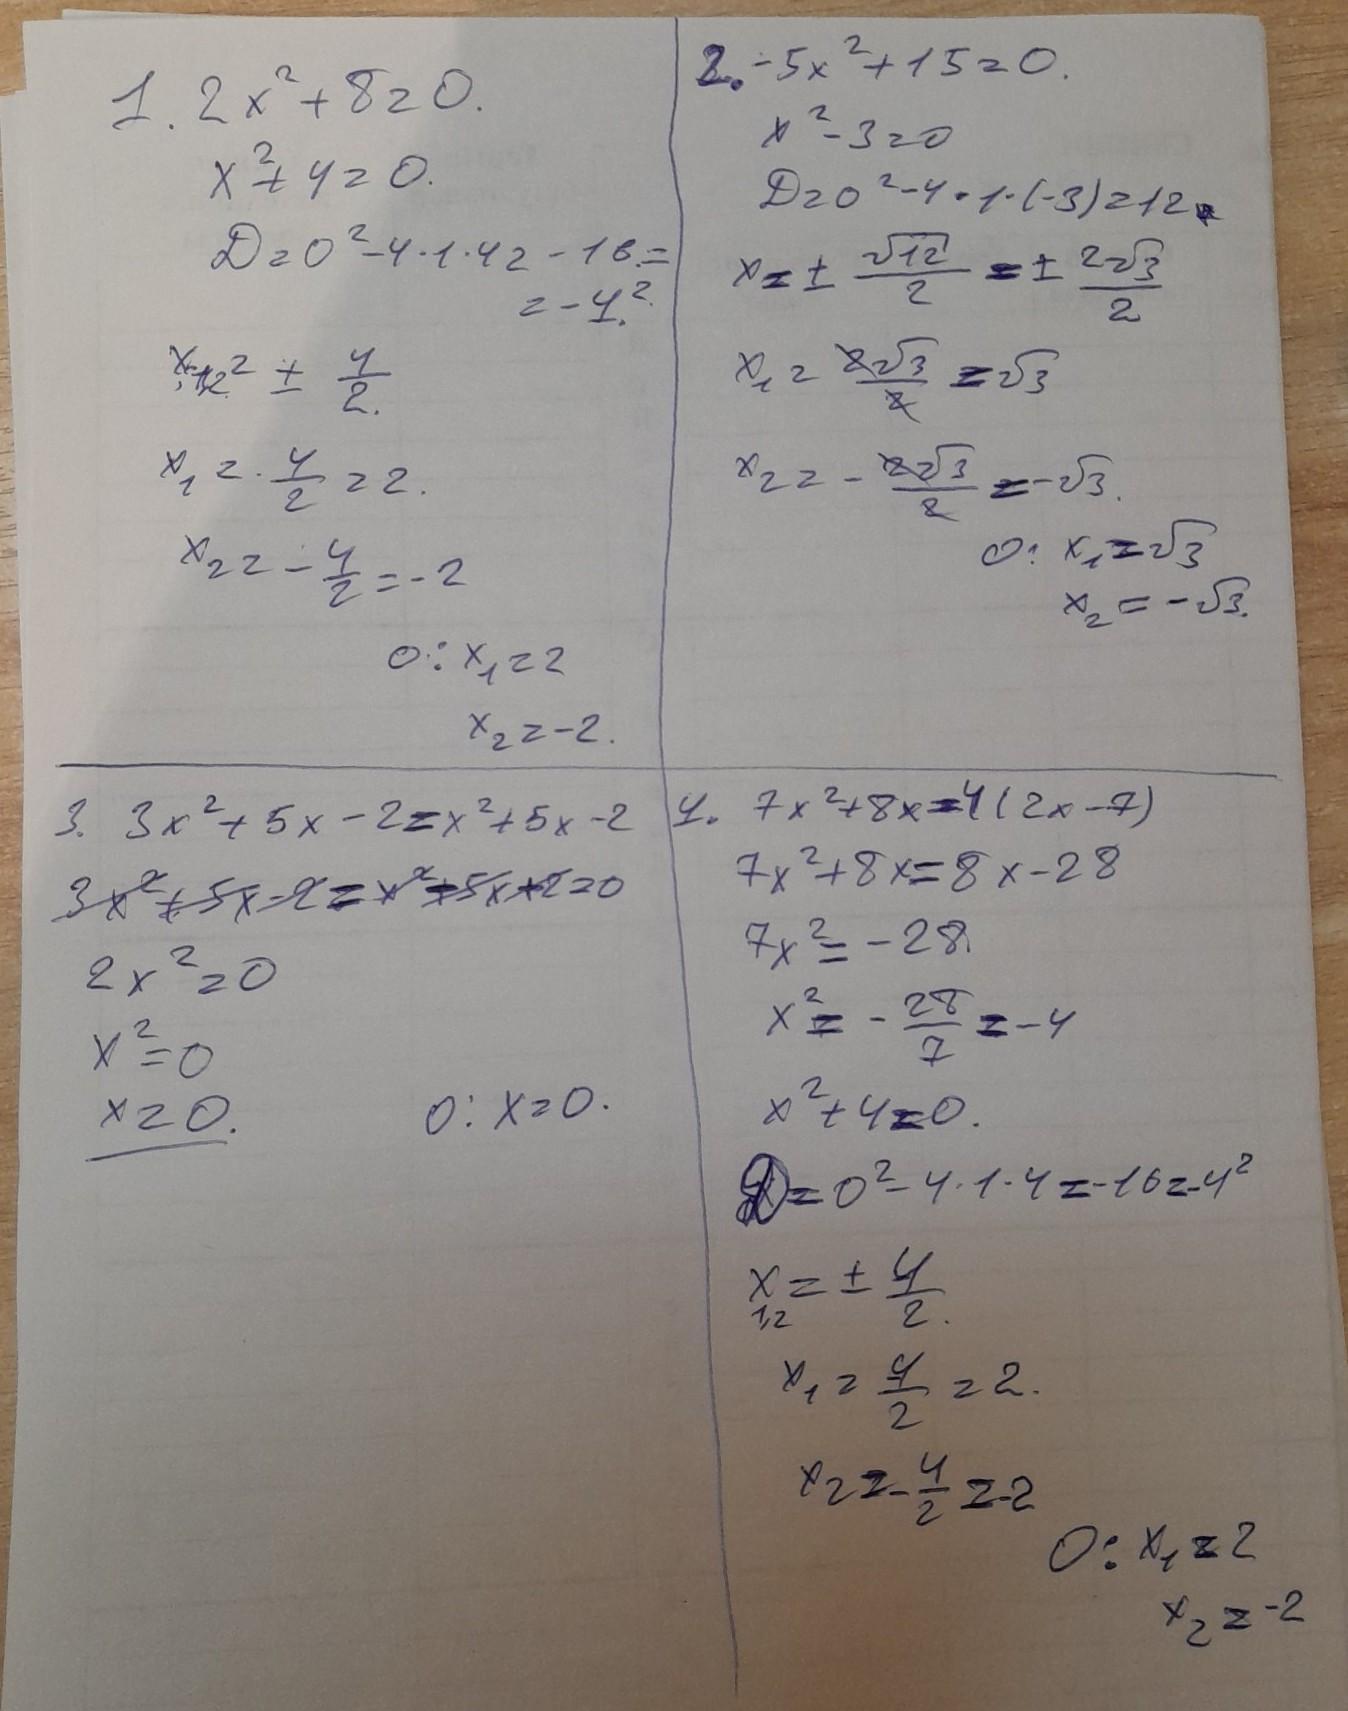 1. 2x²+8=0.
x²+4=0.
D=0²-4·1·4=-16=
=-4².
x₁,₂= ± 4/2.
x₁=4/2=2.
x₂=-4/2=-2
О: x₁=2
x₂=-2.
2. -5x²+15=0.
x²-3=0
D=0²-4·1·(-3)=12
x=± √12/2 =± 2√3/2
x₁= 2√3/2 =√3
x₂=- 2√3/2 =-√3.
О: x₁=√3
x₂=-√3.
3. 3x²+5x-2=x²+5x-2
3x²+5x-2=x²+5x+2=0
2x²=0
x²=0
x=0.
О: x=0.
4. 7x²+8x=4(2x-7)
7x²+8x=8x-28
7x²=-28
x²=-28/7=-4
x²+4=0.
D=0²-4·1·4=-16=-4²
x₁,₂=± 4/2.
x₁=4/2=2.
x₂=-4/2=-2
О: x₁=2
x₂=-2